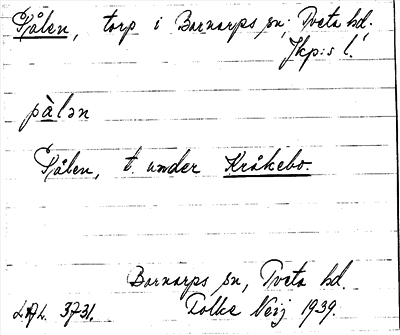 Pålen, torp i Barnarps sn; Tveta hd.
Jkp:s l.
pàlən
Pålen, t. under Kråkebo.
Barnarps sn, Tveta hd.
3731. Folke Neij 1939.